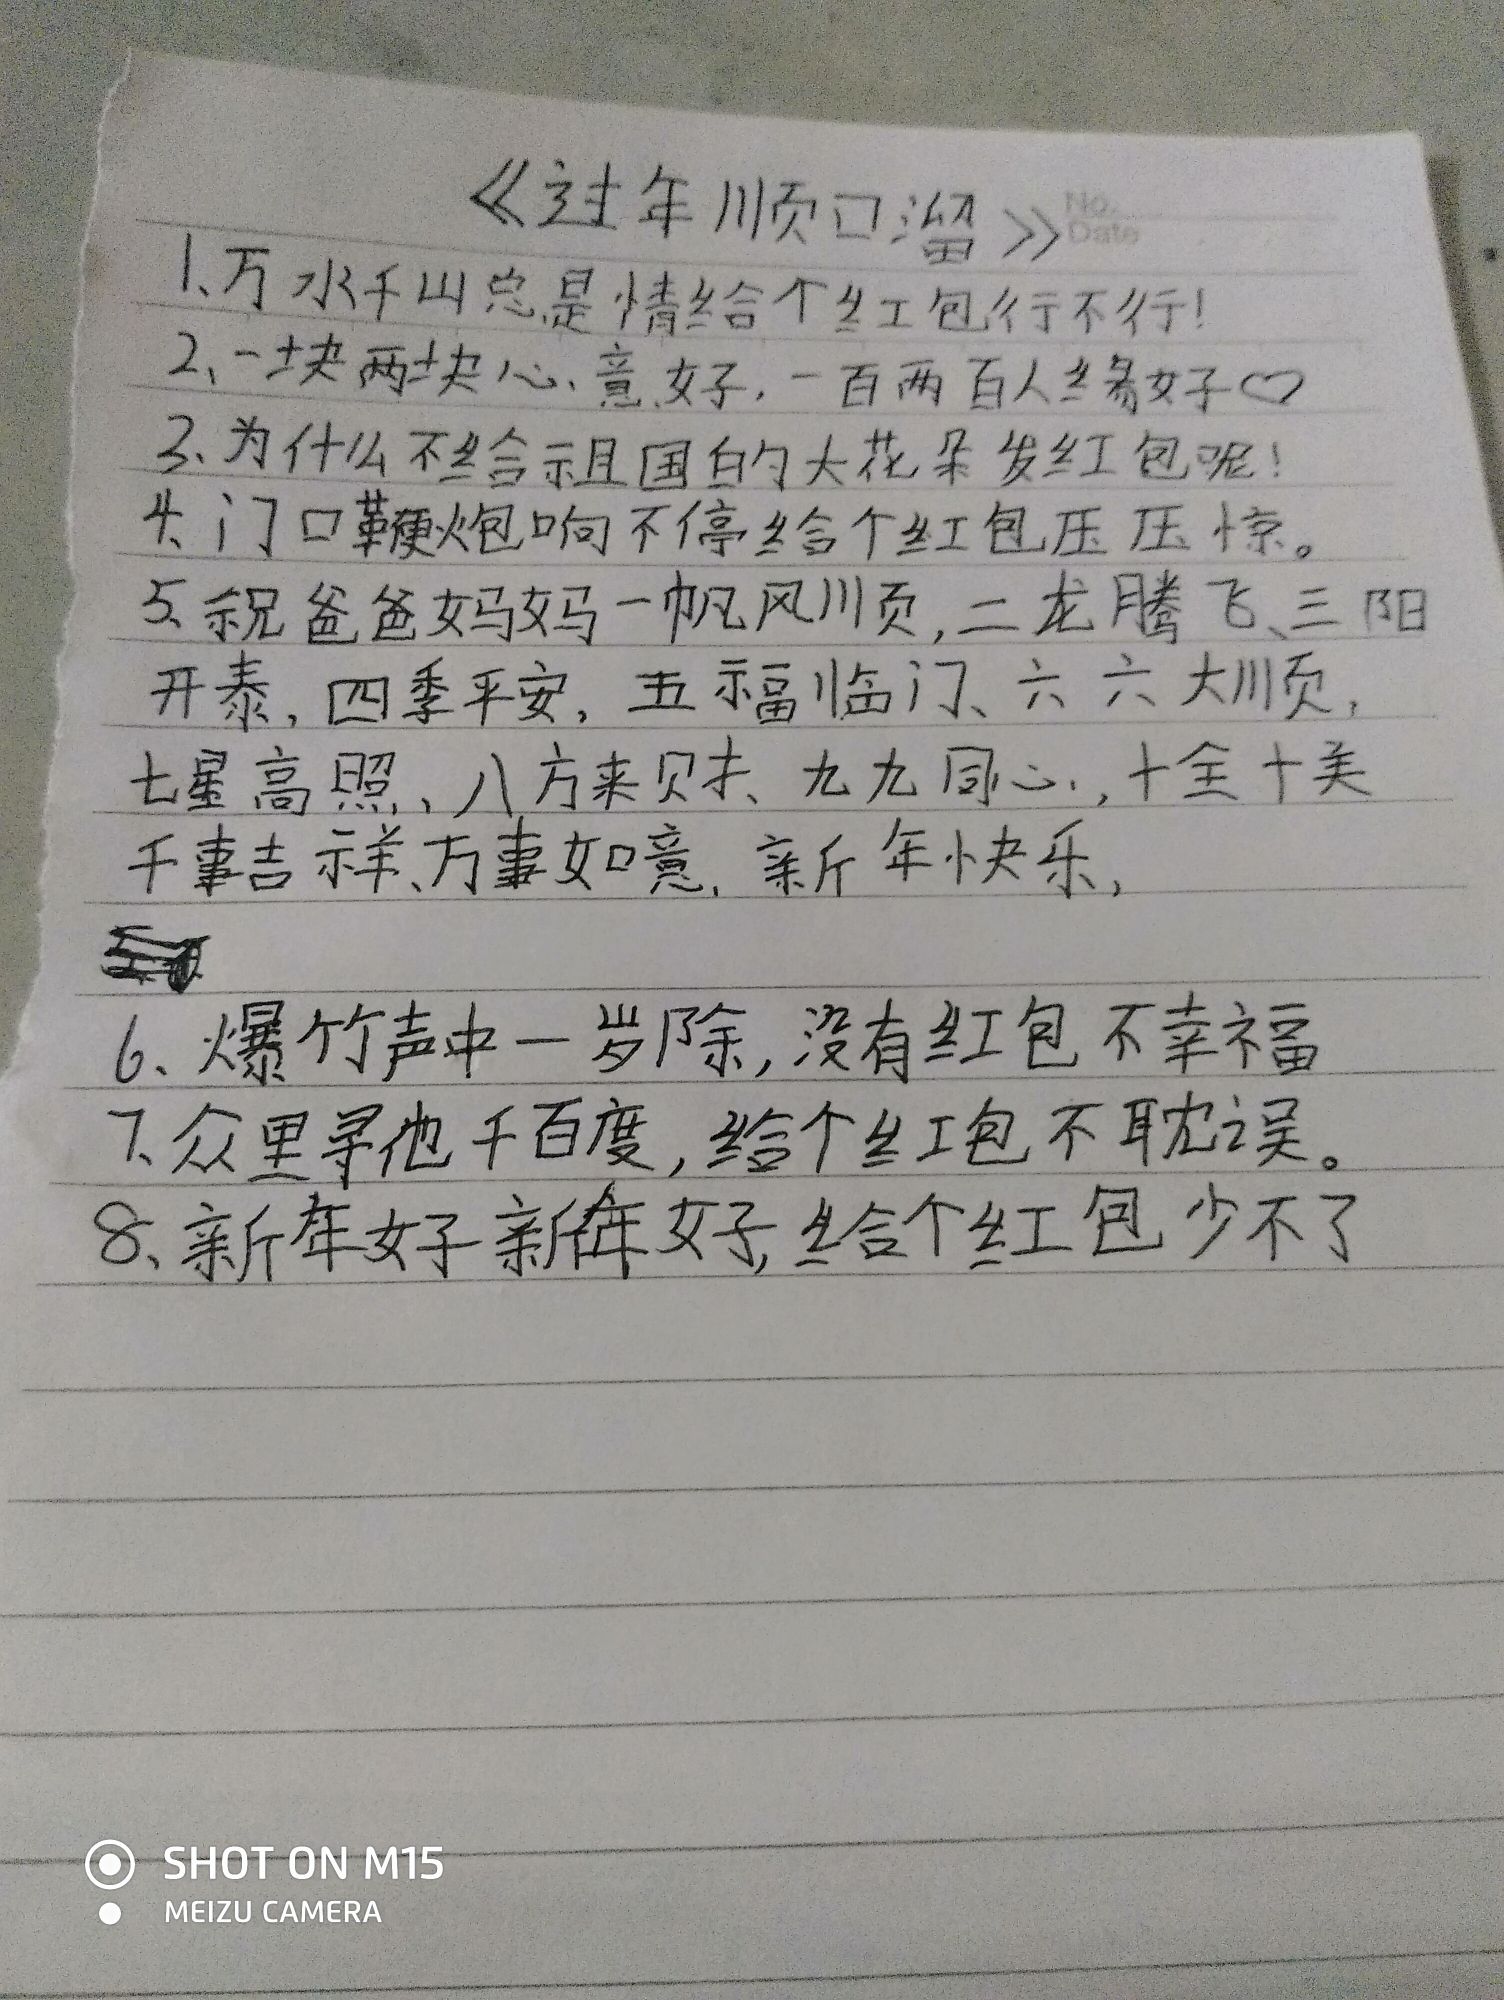 《过年顺口溜》
No.
Date
1、万水千山总是情给个红包行不行！
2、一块两块心意好，一百两百人缘好♡
3、为什么不给祖国的大花朵发红包呢！
4、门口鞭炮响不停给个红包压压惊。
5、祝爸爸妈妈一帆风顺，二龙腾飞、三阳
开泰，四季平安，五福临门、六六大顺，
七星高照、八方来财、九九同心，十全十美
千事吉祥、万事如意，新年快乐，
6、爆竹声中一岁除，没有红包不幸福
7、众里寻他千百度，给个红包不耽误。
8、新年好新年好，给个红包少不了
SHOT ON M15
MEIZU CAMERA